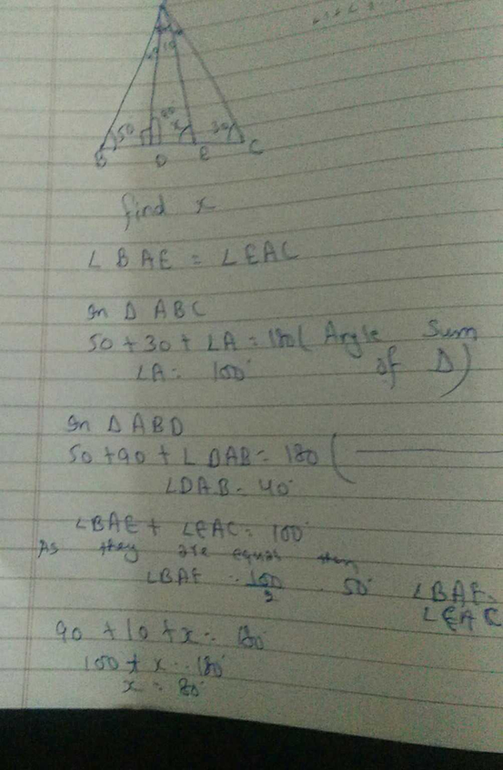 10
50
x
30
B
D
E
C
find x
∠ BAE = ∠EAC
In Δ ABC
50 + 30 + ∠A = 180 ( Angle Sum of Δ )
∠A = 100°
In Δ ABD
50 + 90 + ∠DAB = 180 (
∠DAB = 40°
∠BAE + ∠EAC = 100°
As they are equal then
∠BAE = 100/2 = 50° ∠BAE = ∠EAC
90 + 10 + x = 180°
100 + x = 180°
x = 80°